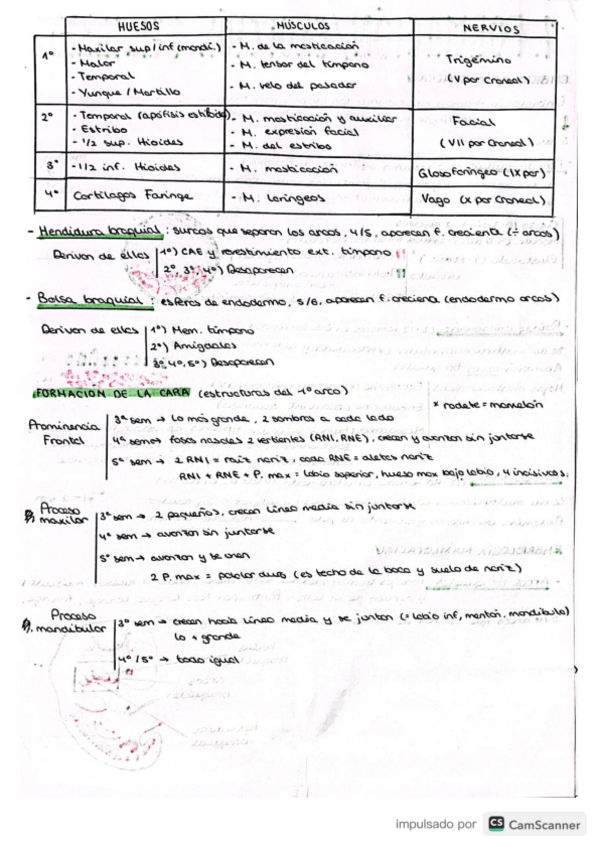 HUESOS MÚSCULOS NERVIOS
1º - Maxilar sup/inf (mandi.) - M. de la masticación Trigémino
- Malar - M. tensor del tímpano (V par craneal)
- Temporal - M. velo del paladar
- Yunque / Martillo
2º - Temporal (apófisis estiloide) - M. masticación y auxiliar Facial
- Estribo - M. expresión facial (VII par craneal)
- 1/2 sup. Hioides - M. del estribo
3º - 1/2 inf. Hioides - M. masticación Glosofaríngeo (IX par)
4º Cartílagos Faringe - M. laríngeos Vago (X par craneal)
- Hendidura braquial: surcos que separan los arcos, 4/5, aparecen f. creciente (÷ arcos)
Derivan de ellas 1º) CAE y revestimiento ext. tímpano
2º, 3º, 4º) Desaparecen
- Bolsa braquial: esferas de endodermo, 5/6, aparecen f. creciente (endodermo arcos)
Derivan de ellas 1º) Mem. tímpano
2º) Amígdalas
3º, 4º, 5º) Desaparecen
FORMACIÓN DE LA CARA (estructuras del 1º arco)
* rodete = mamelón
Prominencia Frontal 3ª sem → Lo más grande, 2 sombras a cada lado
4ª sem → fosas nasales 2 vertientes (RNI, RNE), crecen y avanzan sin juntarse
5ª sem → 2 RNI = raíz nariz, cada RNE = aletas nariz
RNI + RNE + P. max = labio superior, hueso max bajo labio, 4 incisivos.
Proceso maxilar 3ª sem → 2 pequeños, crecen línea media sin juntarse
4ª sem → avanzan sin juntarse
5ª sem → avanzan y se unen
2 P. max = paladar duro (es techo de la boca y suelo de nariz)
Proceso mandibular 3ª sem → crecen hacia línea media y se juntan (= labio inf, mentón, mandíbula)
lo + grande
4ª / 5ª → todo igual
impulsado por CS CamScanner